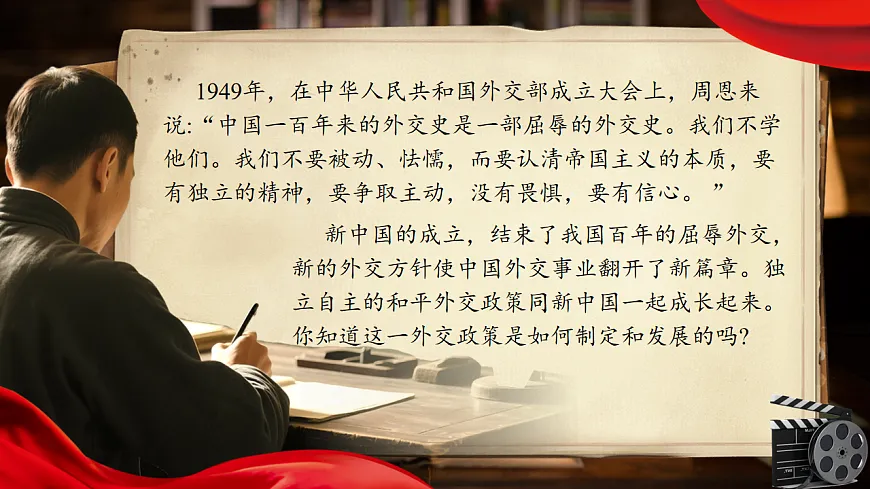 1949年，在中华人民共和国外交部成立大会上，周恩来
说:“中国一百年来的外交史是一部屈辱的外交史。我们不学
他们。我们不要被动、怯懦，而要认清帝国主义的本质，要
有独立的精神，要争取主动，没有畏惧，要有信心。”
新中国的成立，结束了我国百年的屈辱外交，
新的外交方针使中国外交事业翻开了新篇章。独
立自主的和平外交政策同新中国一起成长起来。
你知道这一外交政策是如何制定和发展的吗？